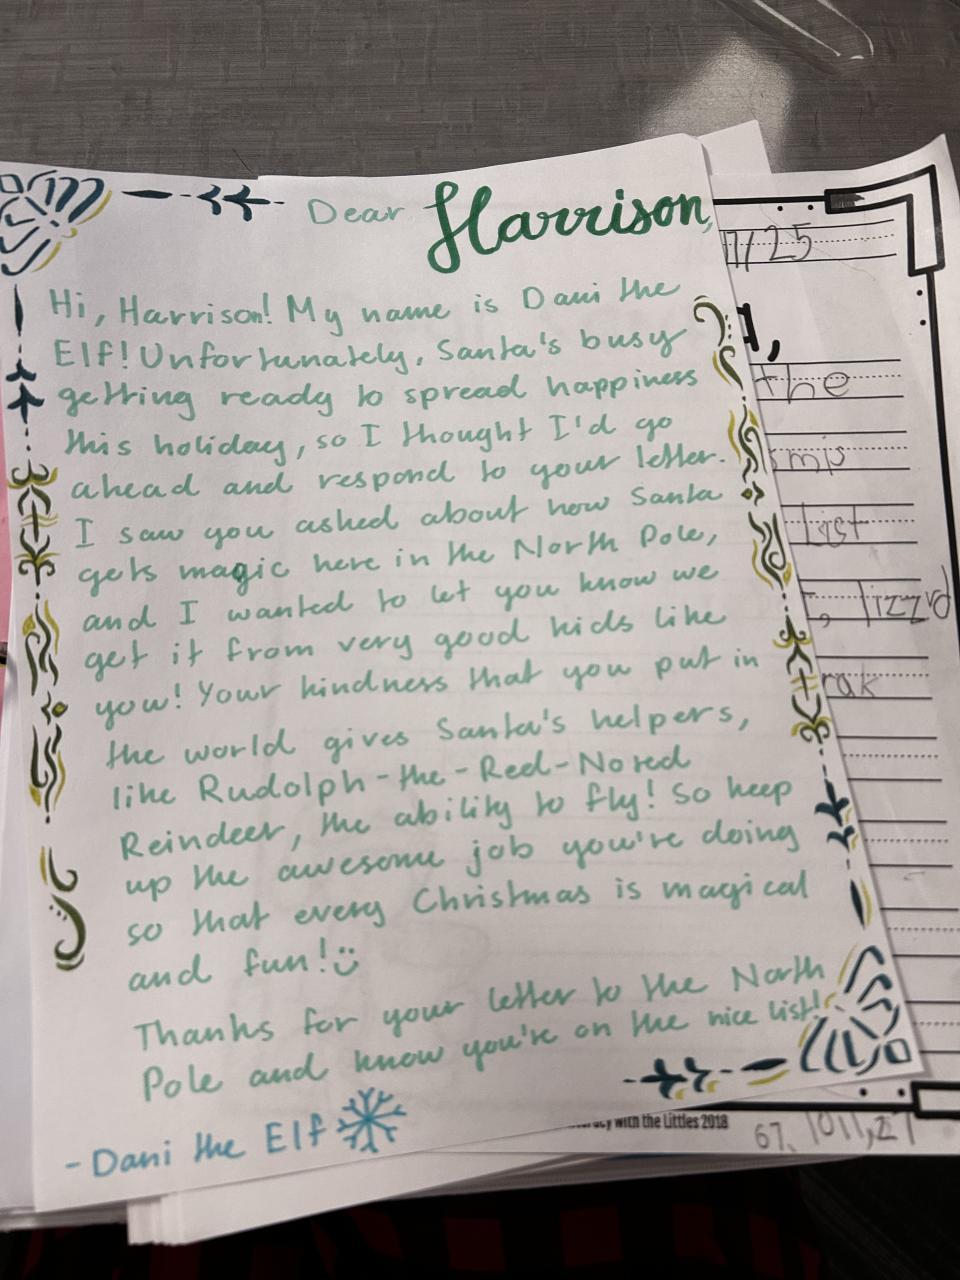 Dear Harrison,
Hi, Harrison! My name is Dani the
Elf! Unfortunately, Santa's busy
getting ready to spread happiness
this holiday, so I thought I'd go
ahead and respond to your letter.
I saw you asked about how Santa
gets magic here in the North Pole,
and I wanted to let you know we
get it from very good kids like
you! Your kindness that you put in
the world gives Santa's helpers,
like Rudolph-the-Red-Nosed
Reindeer, the ability to fly! So keep
up the awesome job you're doing
so that every Christmas is magical
and fun!
Thanks for your letter to the North
Pole and know you're on the nice list!
- Dani the Elf
/25
the
list
lizzrd
rak
with the Littles 2018
67, 1011,27